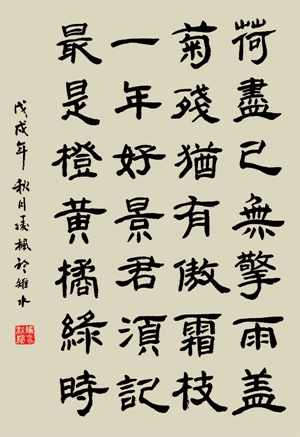 荷盡已無擎雨盖
菊殘猶有傲霜枝
一年好景君須記
最是橙黃橘綠時
戊戌年秋月凌楓於雒水